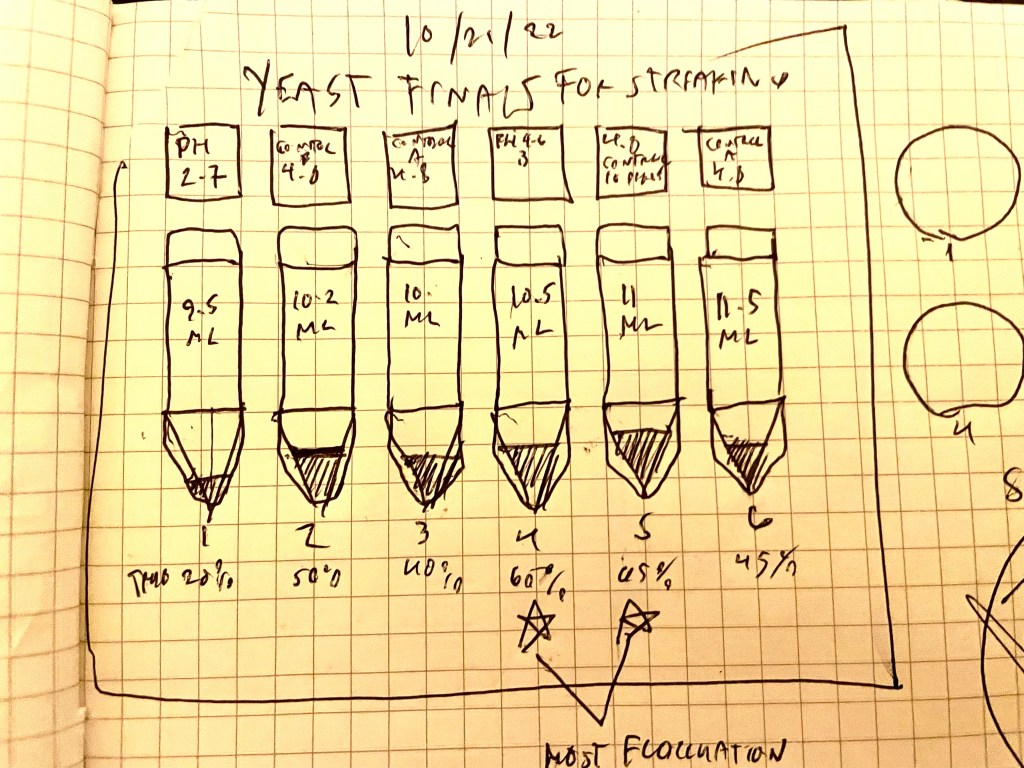 10/21/22
YEAST FINALS FOR STREAKING
PH
2-7
CONTROL
B
4.8
CONTROL
A
4.8
PH 4-6
3
4.8
CONTROL
10 PLATE
CONTROL
A
4.8
9.5
ML
10.2
ML
10.
ML
10.5
ML
11
ML
11.5
ML
1
2
3
4
5
6
TRUB 20%
50%
40%
60%
45%
1
4
8
MOST FLOCCULATION